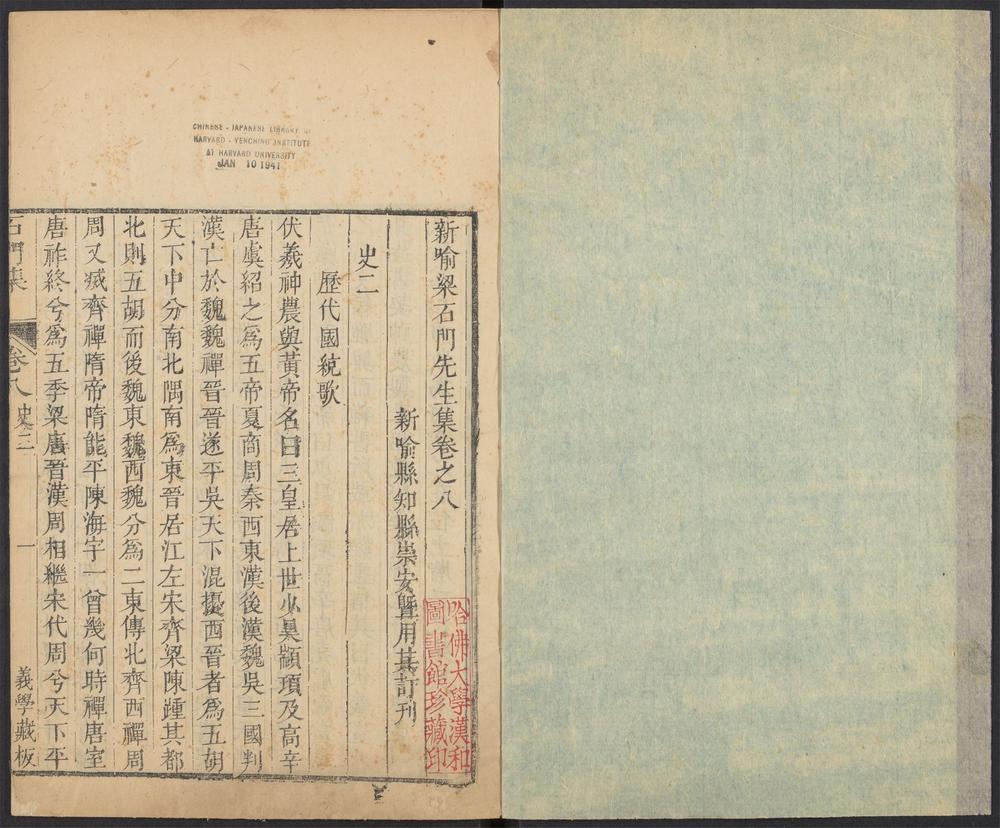 CHINESE - JAPANESE LIBRARY OF
HARVARD - YENCHING INSTITUTE
AT HARVARD UNIVERSITY
JAN 10 1941
新喻梁石門先生集卷之八
新喻縣知縣崇安暨用其訂刊
史二
歷代國統歌
伏羲神農與黃帝名曰三皇居上世少昊顓頊及高辛
唐虞紹之爲五帝夏商周秦西東漢後漢魏吳三國判
漢亡於魏魏禪晉晉遂平吳天下混擾西晉者爲五胡
天下中分南北隅南爲東晉居江左宋齊梁陳踵其都
北則五胡而後魏東魏西魏分爲二東傳北齊西禪周
周又滅齊禪隋帝隋能平陳海宇一曾幾何時禪唐室
唐祚終兮爲五季梁唐晉漢周相繼宋代周兮天下平
石門集
卷八
史二
一
義學藏板
哈佛大學漢和
圖書館珍藏印